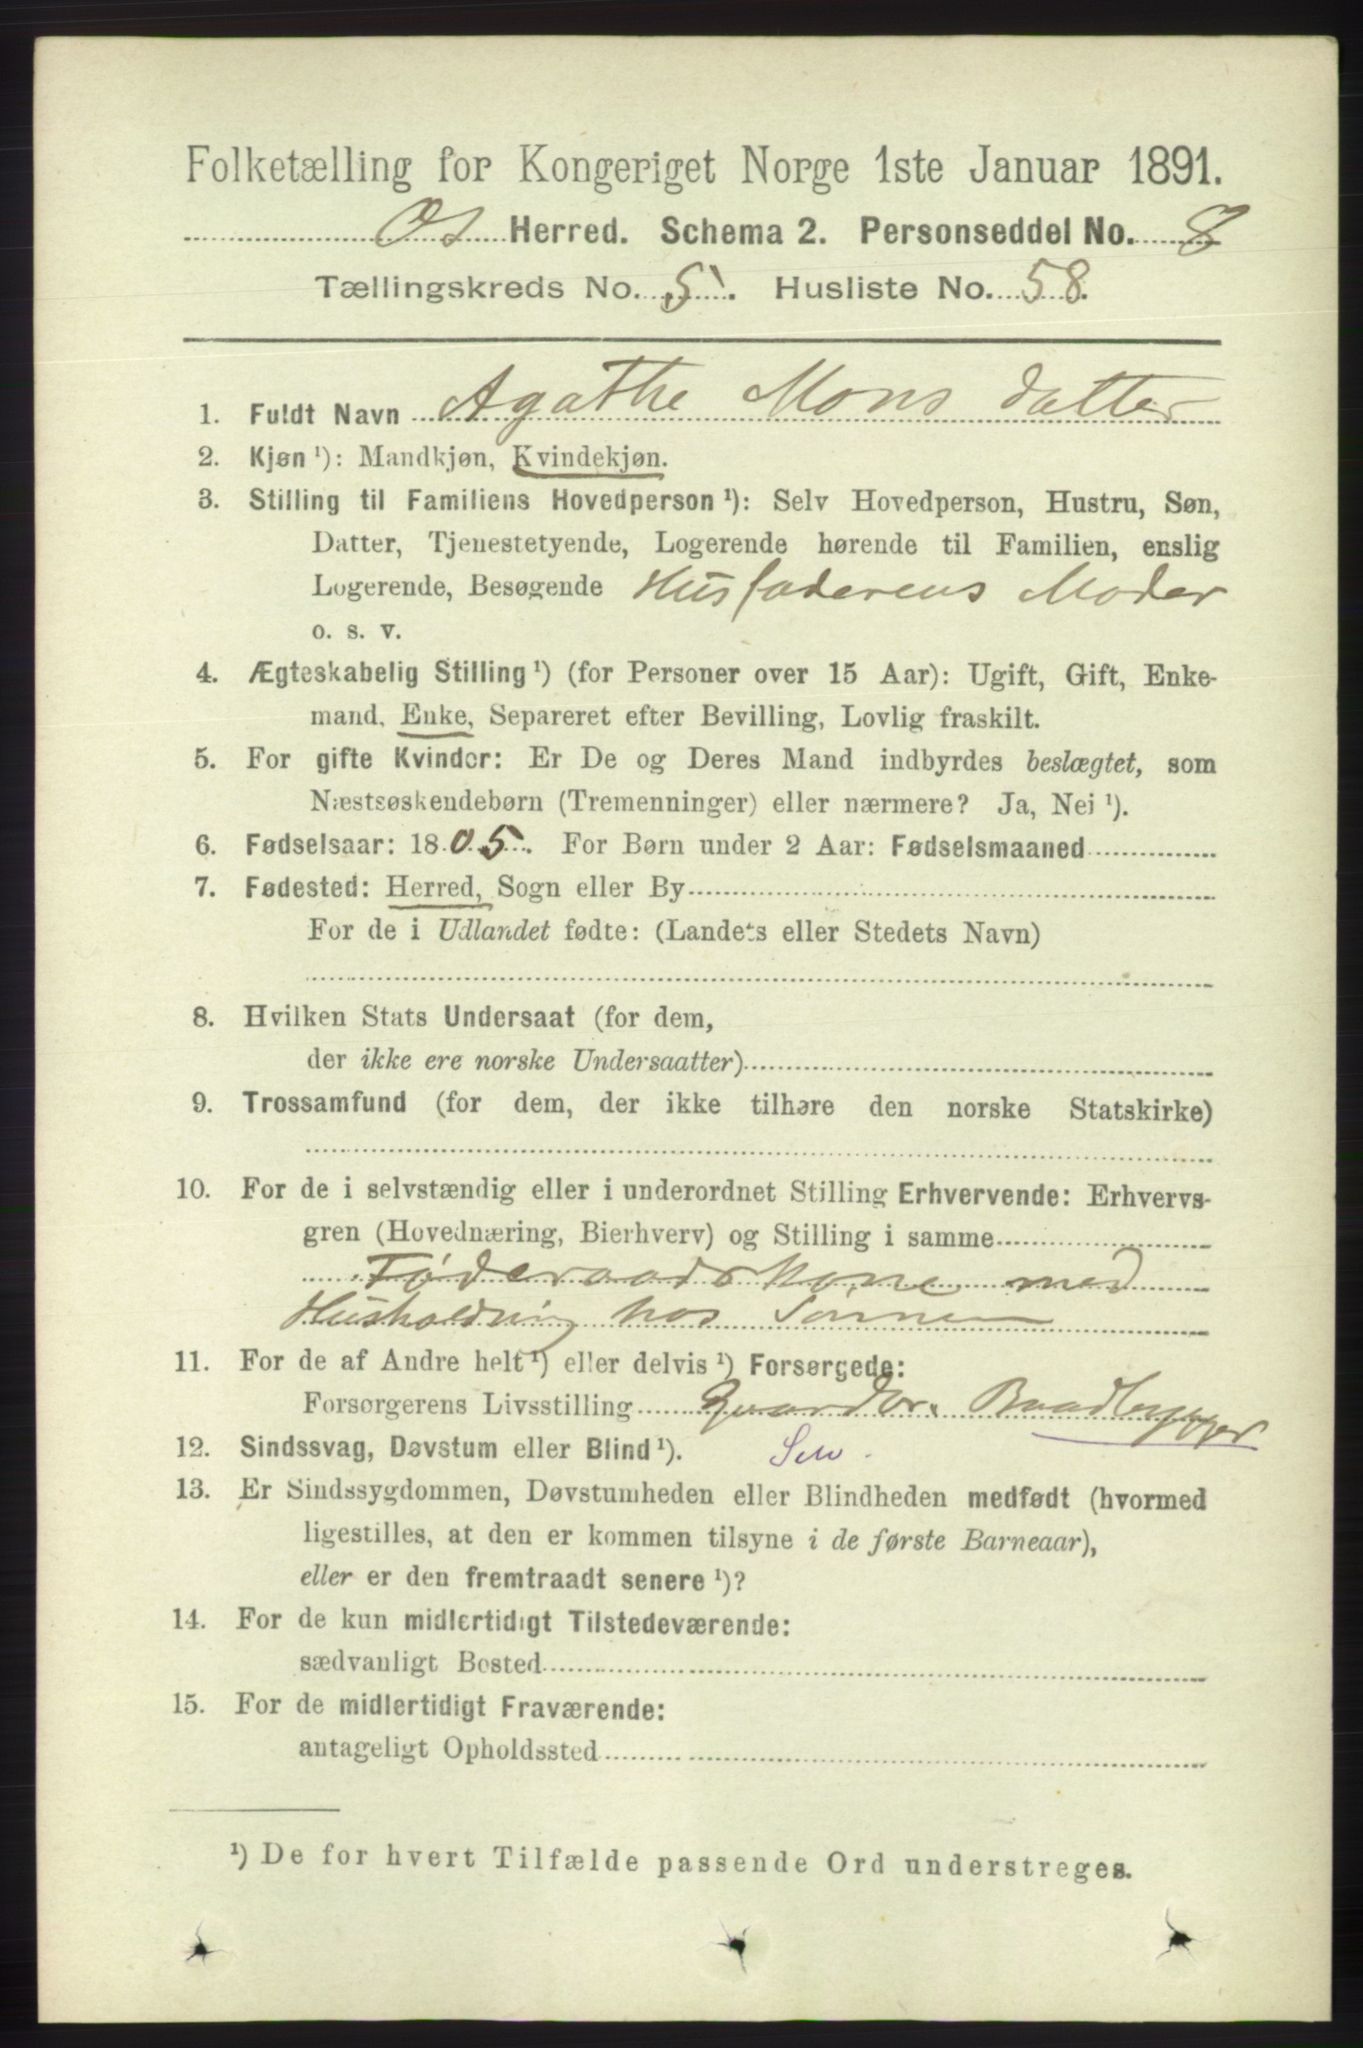 Folketælling for Kongeriget Norge 1ste Januar 1891.
Os Herred. Schema 2. Personseddel No. 8
Tællingskreds No. 5. Husliste No. 58.
1. Fuldt Navn Agathe Mons datter
2. Kjøn ¹): Mandkjøn, Kvindekjøn.
3. Stilling til Familiens Hovedperson ¹): Selv Hovedperson, Hustru, Søn,
Datter, Tjenestetyende, Logerende hørende til Familien, enslig
Logerende, Besøgende Husfaderens Moder
o. s. v.
4. Ægteskabelig Stilling ¹) (for Personer over 15 Aar): Ugift, Gift, Enke-
mand, Enke, Separeret efter Bevilling, Lovlig fraskilt.
5. For gifte Kvinder: Er De og Deres Mand indbyrdes beslægtet, som
Næstsøskendebørn (Tremenninger) eller nærmere? Ja, Nei ¹).
6. Fødselsaar: 1805. For Børn under 2 Aar: Fødselsmaaned
7. Fødested: Herred, Sogn eller By
For de i Udlandet fødte: (Landets eller Stedets Navn)
8. Hvilken Stats Undersaat (for dem,
der ikke ere norske Undersaatter)
9. Trossamfund (for dem, der ikke tilhøre den norske Statskirke)
10. For de i selvstændig eller i underordnet Stilling Erhvervende: Erhvervs-
gren (Hovednæring, Bierhverv) og Stilling i samme
Føderaadskone med
Husholdning hos Sønnen
11. For de af Andre helt ¹) eller delvis ¹) Forsørgede:
Forsørgerens Livsstilling Gaardbr. Baadbygger
12. Sindssvag, Døvstum eller Blind ¹). Selv.
13. Er Sindssygdommen, Døvstumheden eller Blindheden medfødt (hvormed
ligestilles, at den er kommen tilsyne i de første Barneaar),
eller er den fremtraadt senere ¹)?
14. For de kun midlertidigt Tilstedeværende:
sædvanligt Bosted
15. For de midlertidigt Fraværende:
antageligt Opholdssted
¹) De for hvert Tilfælde passende Ord understreges.